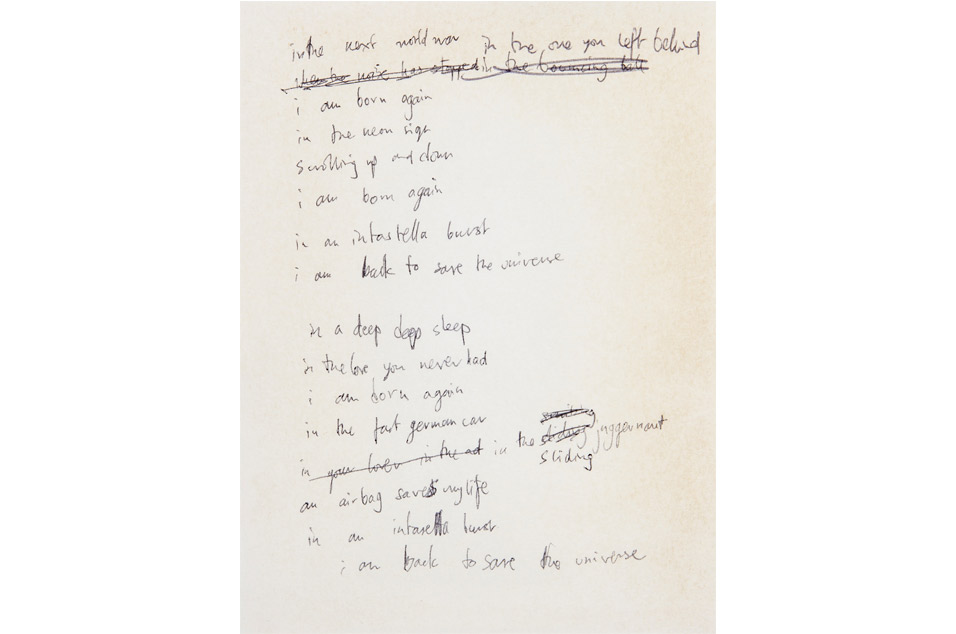 in the next world war in the one you left behind
in the bouncing ball
i am born again
in the neon sign
scrolling up and down
i am born again
in an intastella burst
i am back to save the universe
in a deep deep sleep
in the love you never had
i am born again
in the fast german car
in your lover in the ad in the sliding juggernaut
sliding
an airbag saves my life
in an intastella burst
i am back to save the universe